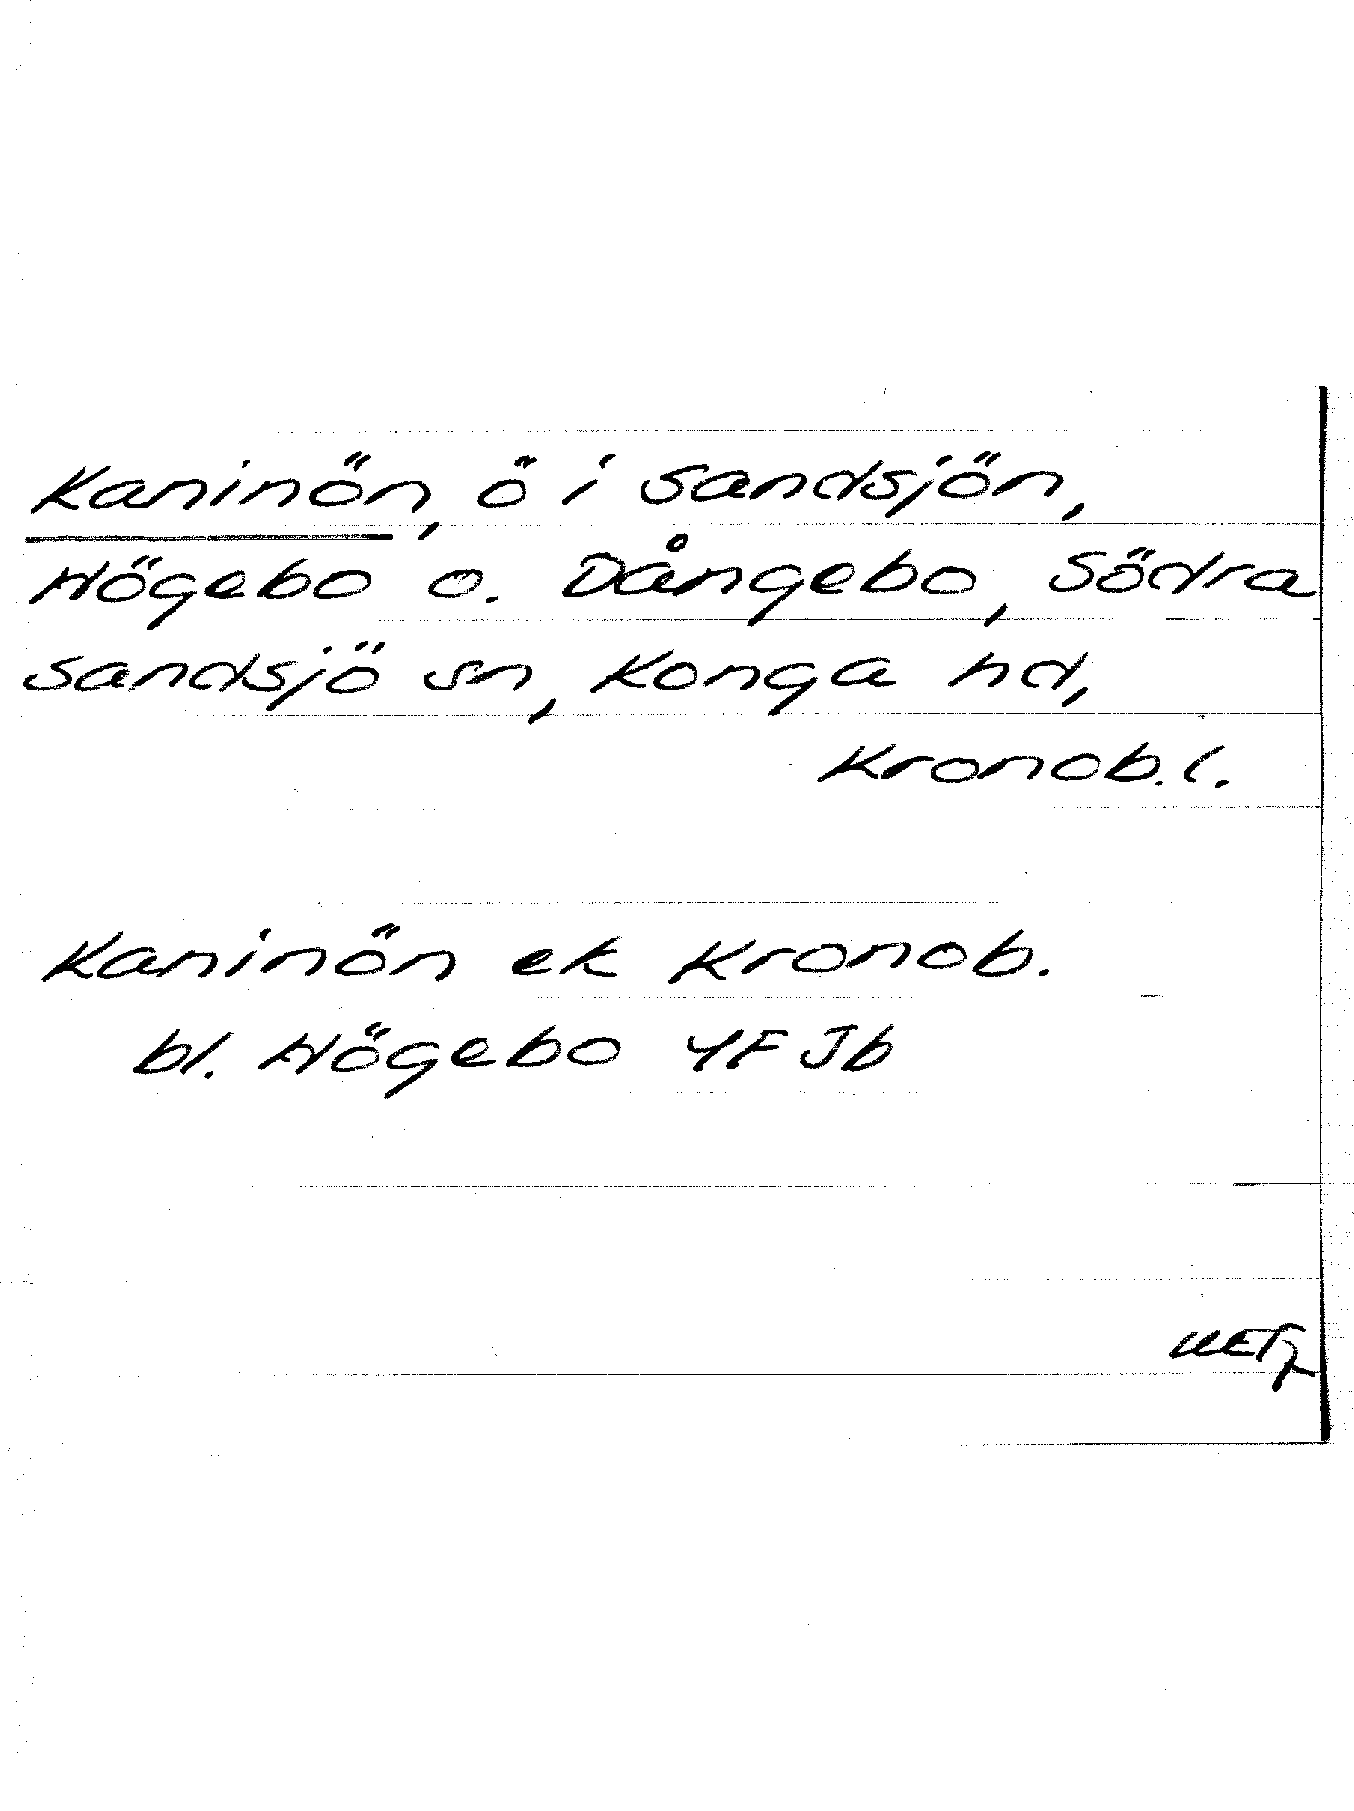 Kaninön, ö i Sandsjön,
Högebo o. Dångebo, Södra
Sandsjö sn, Konga hd,
Kronob. l.
Kaninön ek Kronob.
bl. Högebo 4F Jb